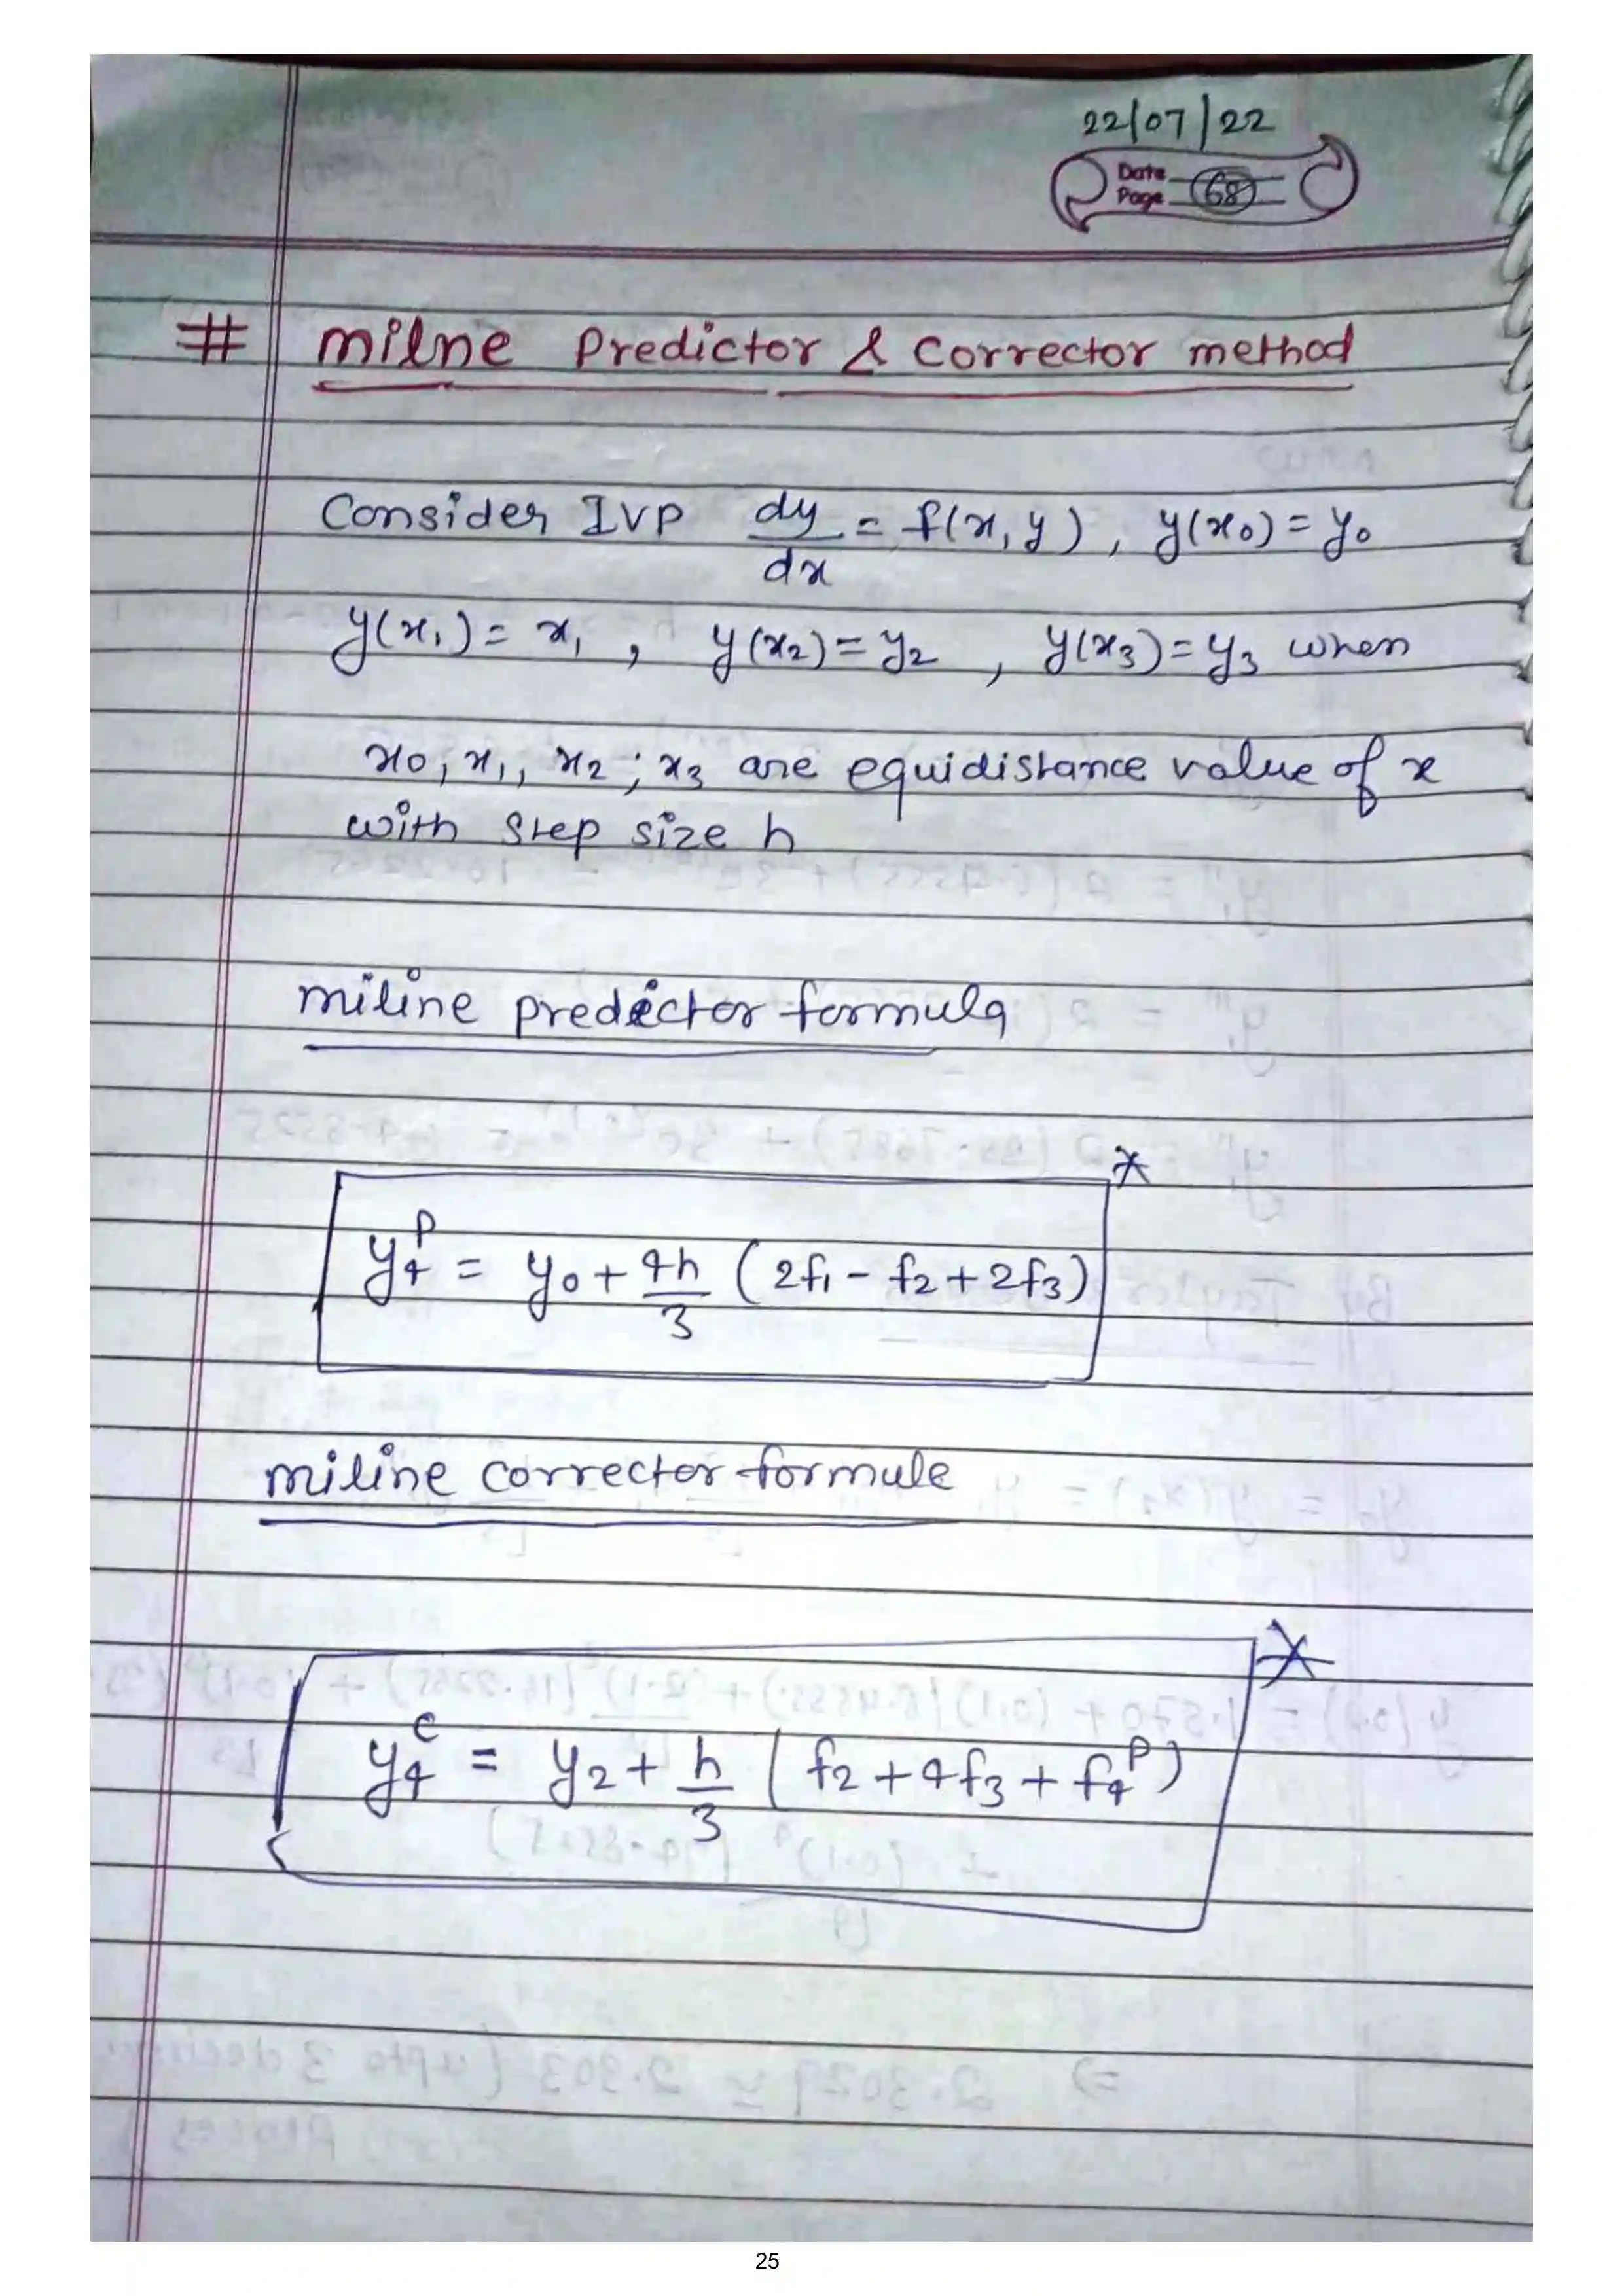 22/07/22
Date
Page 68
# Milne Predictor & Corrector method
Consider IVP dy/dx = f(x, y), y(x₀) = y₀
y(x₁) = x₁, y(x₂) = y₂, y(x₃) = y₃ when
x₀, x₁, x₂; x₃ are equidistance value of x
with step size h
miline predictor formula
*
y₄ᵖ = y₀ + 4h/3 (2f₁ - f₂ + 2f₃)
miline corrector formule
*
y₄ᶜ = y₂ + h/3 (f₂ + 4f₃ + f₄ᵖ)
25